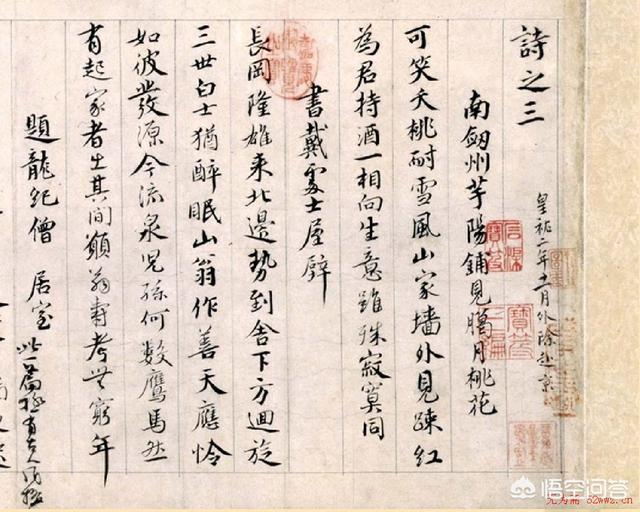 詩之三
皇祐二年十一月外除赴京
南劔州芋陽鋪見臘月桃花
可笑夭桃耐雪風山家墻外見踈紅
為君持酒一相向生意雖殊寂寞同
書戴處士屋壁
長岡隆雄來北邊勢到舍下方迴旋
三世白士猶醉眠山翁作善天應怜
如彼發源今流泉兒孫何數鷹馬然
有起家者出其間願翁壽考無窮年
題龍紀僧居室
此一篇極有古人風格
悟空问答
52wwz.cn